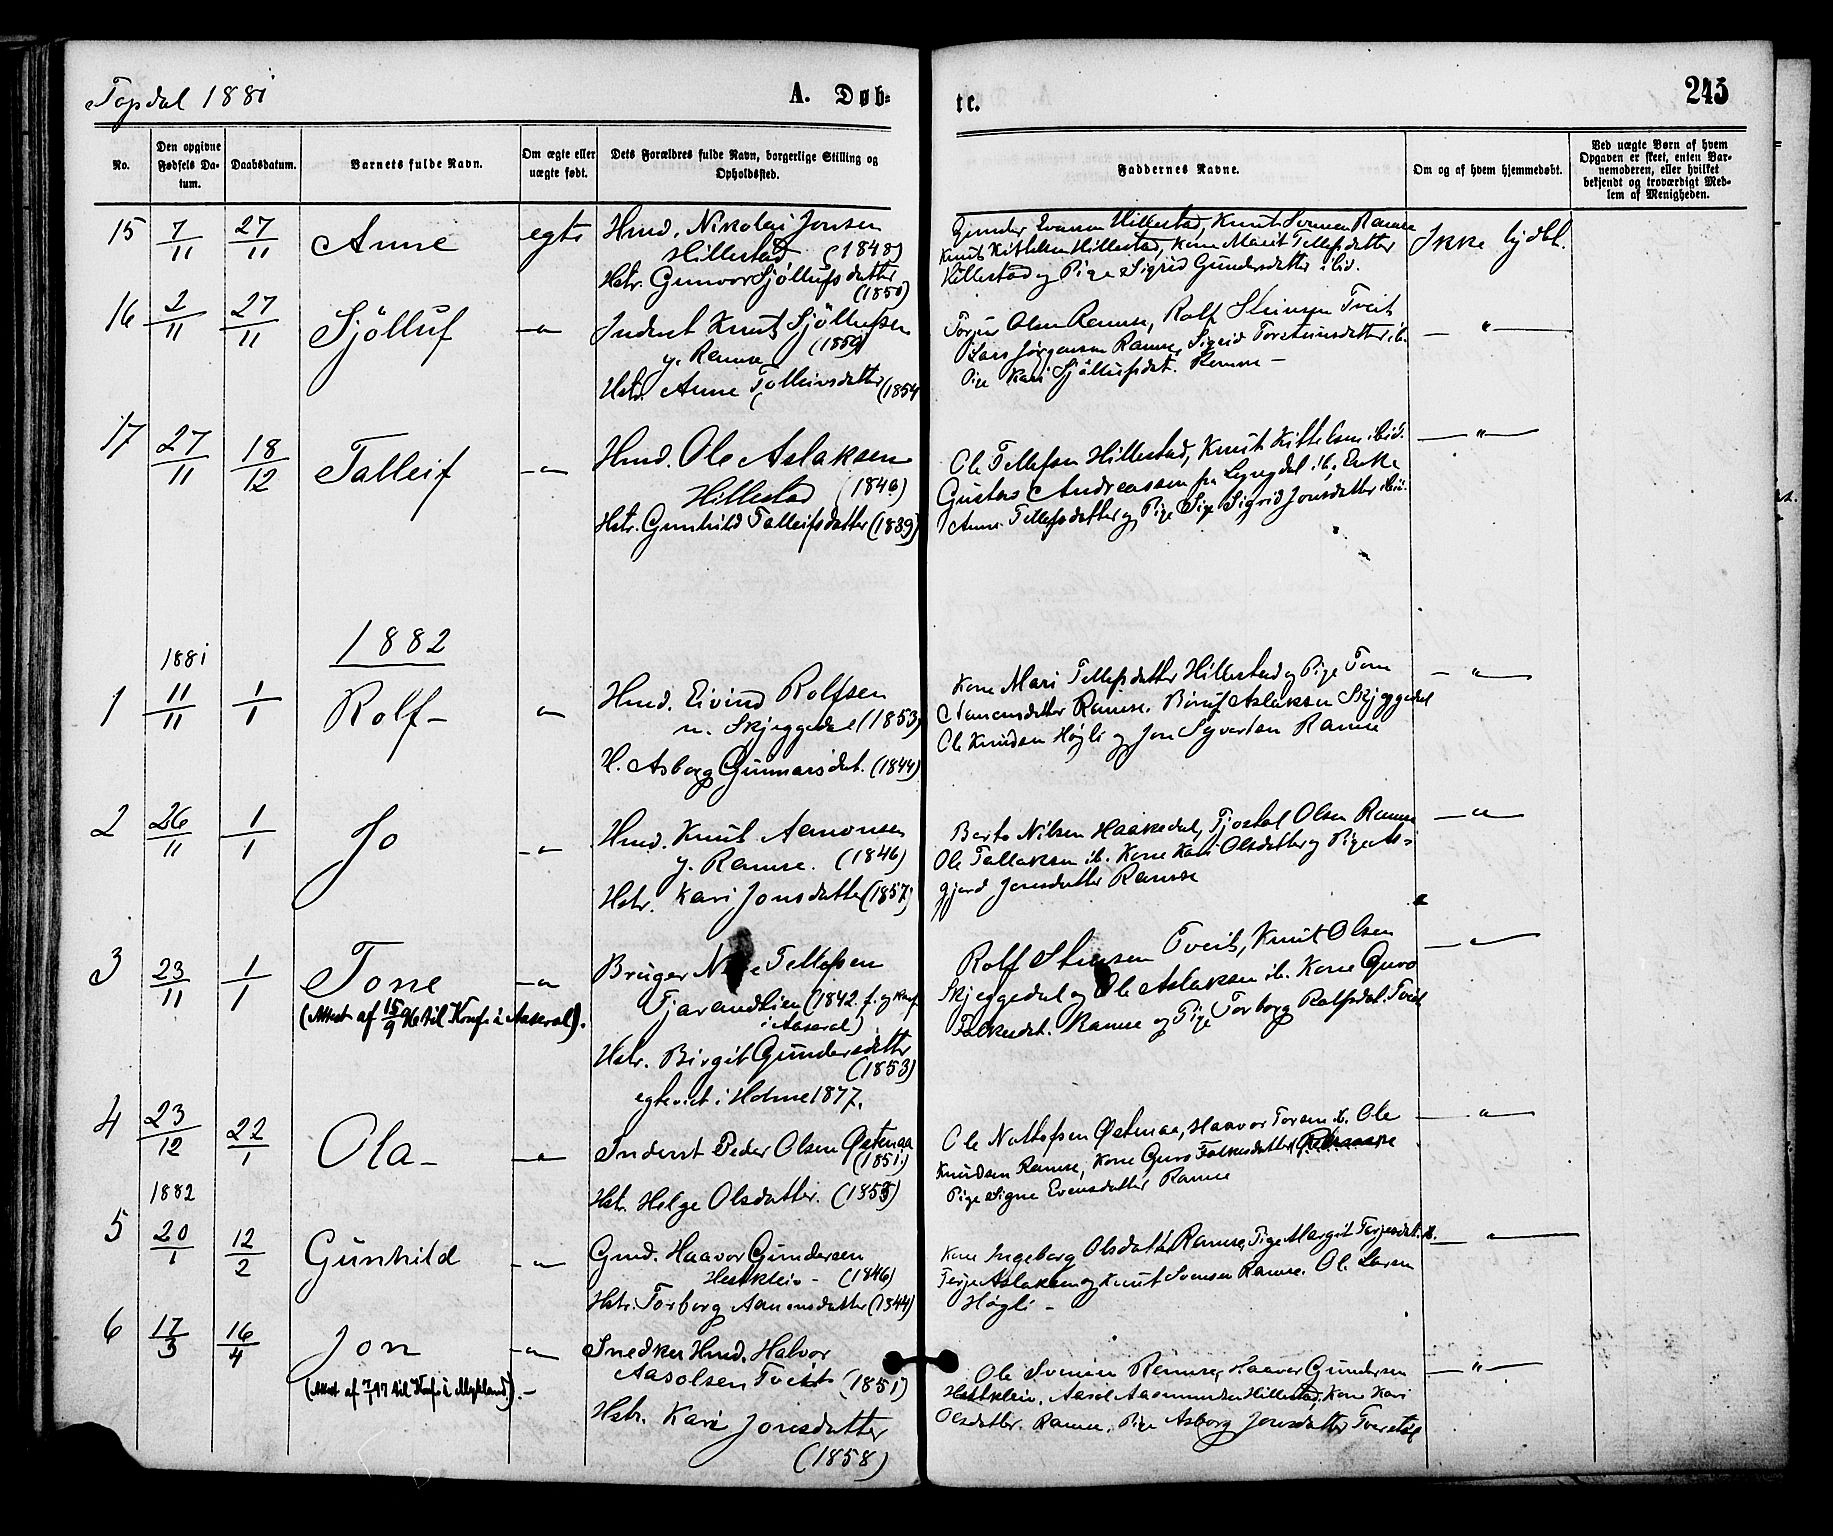 Topdal 1881
A. Døb=
te.
245
No.
Den opgivne Fødsels Da-tum.
Daabsdatum.
Barnets fulde Navn.
Om ægte eller uægte født.
Dets Forældres fulde Navn, borgerlige Stilling og Opholdssted.
Faddernes Navne.
Om og af hvem hjemmedøbt.
Ved uægte Børn af hvem Opgaven er skeet, enten Bar-nemoderen, eller hvilket bekjendt og troværdigt Med-lem af Menigheden.
15 7/11 27/11 Anne egte
Hmd. Nikolai Jonsen
Hillestad (1848)
Hstr. Gunvor Sjøllufsdatter
(1850)
Gunder Evensen Hillestad, Knut Svensen Ramse
Knut Kittelsen Hillestad, Kone Marit Tellefsdatter
Hillestad og Pige Sigrid Gundersdatter ibid.
Ikke hjdbt.
16 2/11 27/11 Sjølluf –"–
Inderst Knut Sjøllufsen
y. Ramse (1850)
Hstr. Anne Tolleivsdatter (1854
Torjus Olsen Ramse, Rolf Steinsen Tveit
Lars Jørgensen Ramse, Sigrid Torsteinsdatter ib.
Pige Kari Sjøllufsdat. Ramse –
– " –
17 27/11 18/12 Talleif –"–
Hmd. Ole Aslaksen
Hillestad (1846)
Hstr. Gunhild Talleifsdatter (1839)
Ole Tellefsen Hillestad, Knut Kittelsen ibid.
Gustav Andreassen fra Lyngdal ib. Enke
Anne Tellefsdatter og Pige Sigrid Jonsdatter ibid.
– " –
1882
1881
1 11/11 1/1 Rolf – "
Hmd. Eivind Rolfsen
n. Skjeggedal (1853)
H. Asborg Gunnarsdat. (1844)
Kone Mari Tellefsdatter Hillestad og Pige Tone
Aamensdatter Ramse. Børuf Aslaksen Skjeggedal
Ole Knudsen Høgli og Jon Syvertsen Ramse
– " –
2 26/11 1/1 Jo –"–
Hmd. Knut Aamonsen
y. Ramse. (1846)
Hstr. Kari Jonsdatter (1857)
Berto Nilsen Haakedal, Tjostol Olsen Ramse
Ole Tallaksen ib. Kone Kari Olsdatter og Pige As=
gjerd Jonsdatter Ramse
– " –
3 23/11 1/1 Tone –"–
(Attest af 15/9 96 til Konf. i Aaseral).
Bruger Tellefsen
Tjarandlien (1842. f. og konf.
i Aaseral)
Hstr. Birgit Gundersdatter
(1853)
egteviet i Holme 1877.
Rolf Stensen Tveit, Knut Olsen
Skjeggedal og Ole Aslaksen ib. Kone Guro
Falkesdat. Ramse og Pige Torborg Rolfsdat. Tveit
– " –
4 23/12 22/1 Ola – –"–
Inderst Peder Olsen Østenaa
(1851)
Hstr. Helge Olsdatter. (1855)
Ole Nottofsen Østenaa, Haavor Torsen ib. Ole
Knudsen Ramse, Kone Guro Falkesdatter
Pige Signe Evensdatter Ramse
– " –
1882
5 20/1 12/2 Gunhild –"–
Gmd. Haavor Gundersen
Hestkleiv – (1846)
Hstr. Torborg Aamensdatter (1844)
Kone Ingeborg Olsdatter Ramse, Pige Margit Terjesdat. ib.
Terje Aslaksen og Knut Svensen Ramse. Ole Larsen
Høgli –
– " –
6 17/3 16/4 Jon –"–
(Attest af 7/7 97 til Konf. i Mykland). –
Snedker Hmd. Halvor
Aasolsen Tveit (1851)
Hstr. Kari Jonsdatter
(1858)
Ole Svensen Ramse, Haavor Gundersen
Hestkleiv, Aasol Aasmundsen Hillestad, Kone Kari
Olsdatter. Ramse, Pige Asborg Jonsdatter Tveitdal
– " –